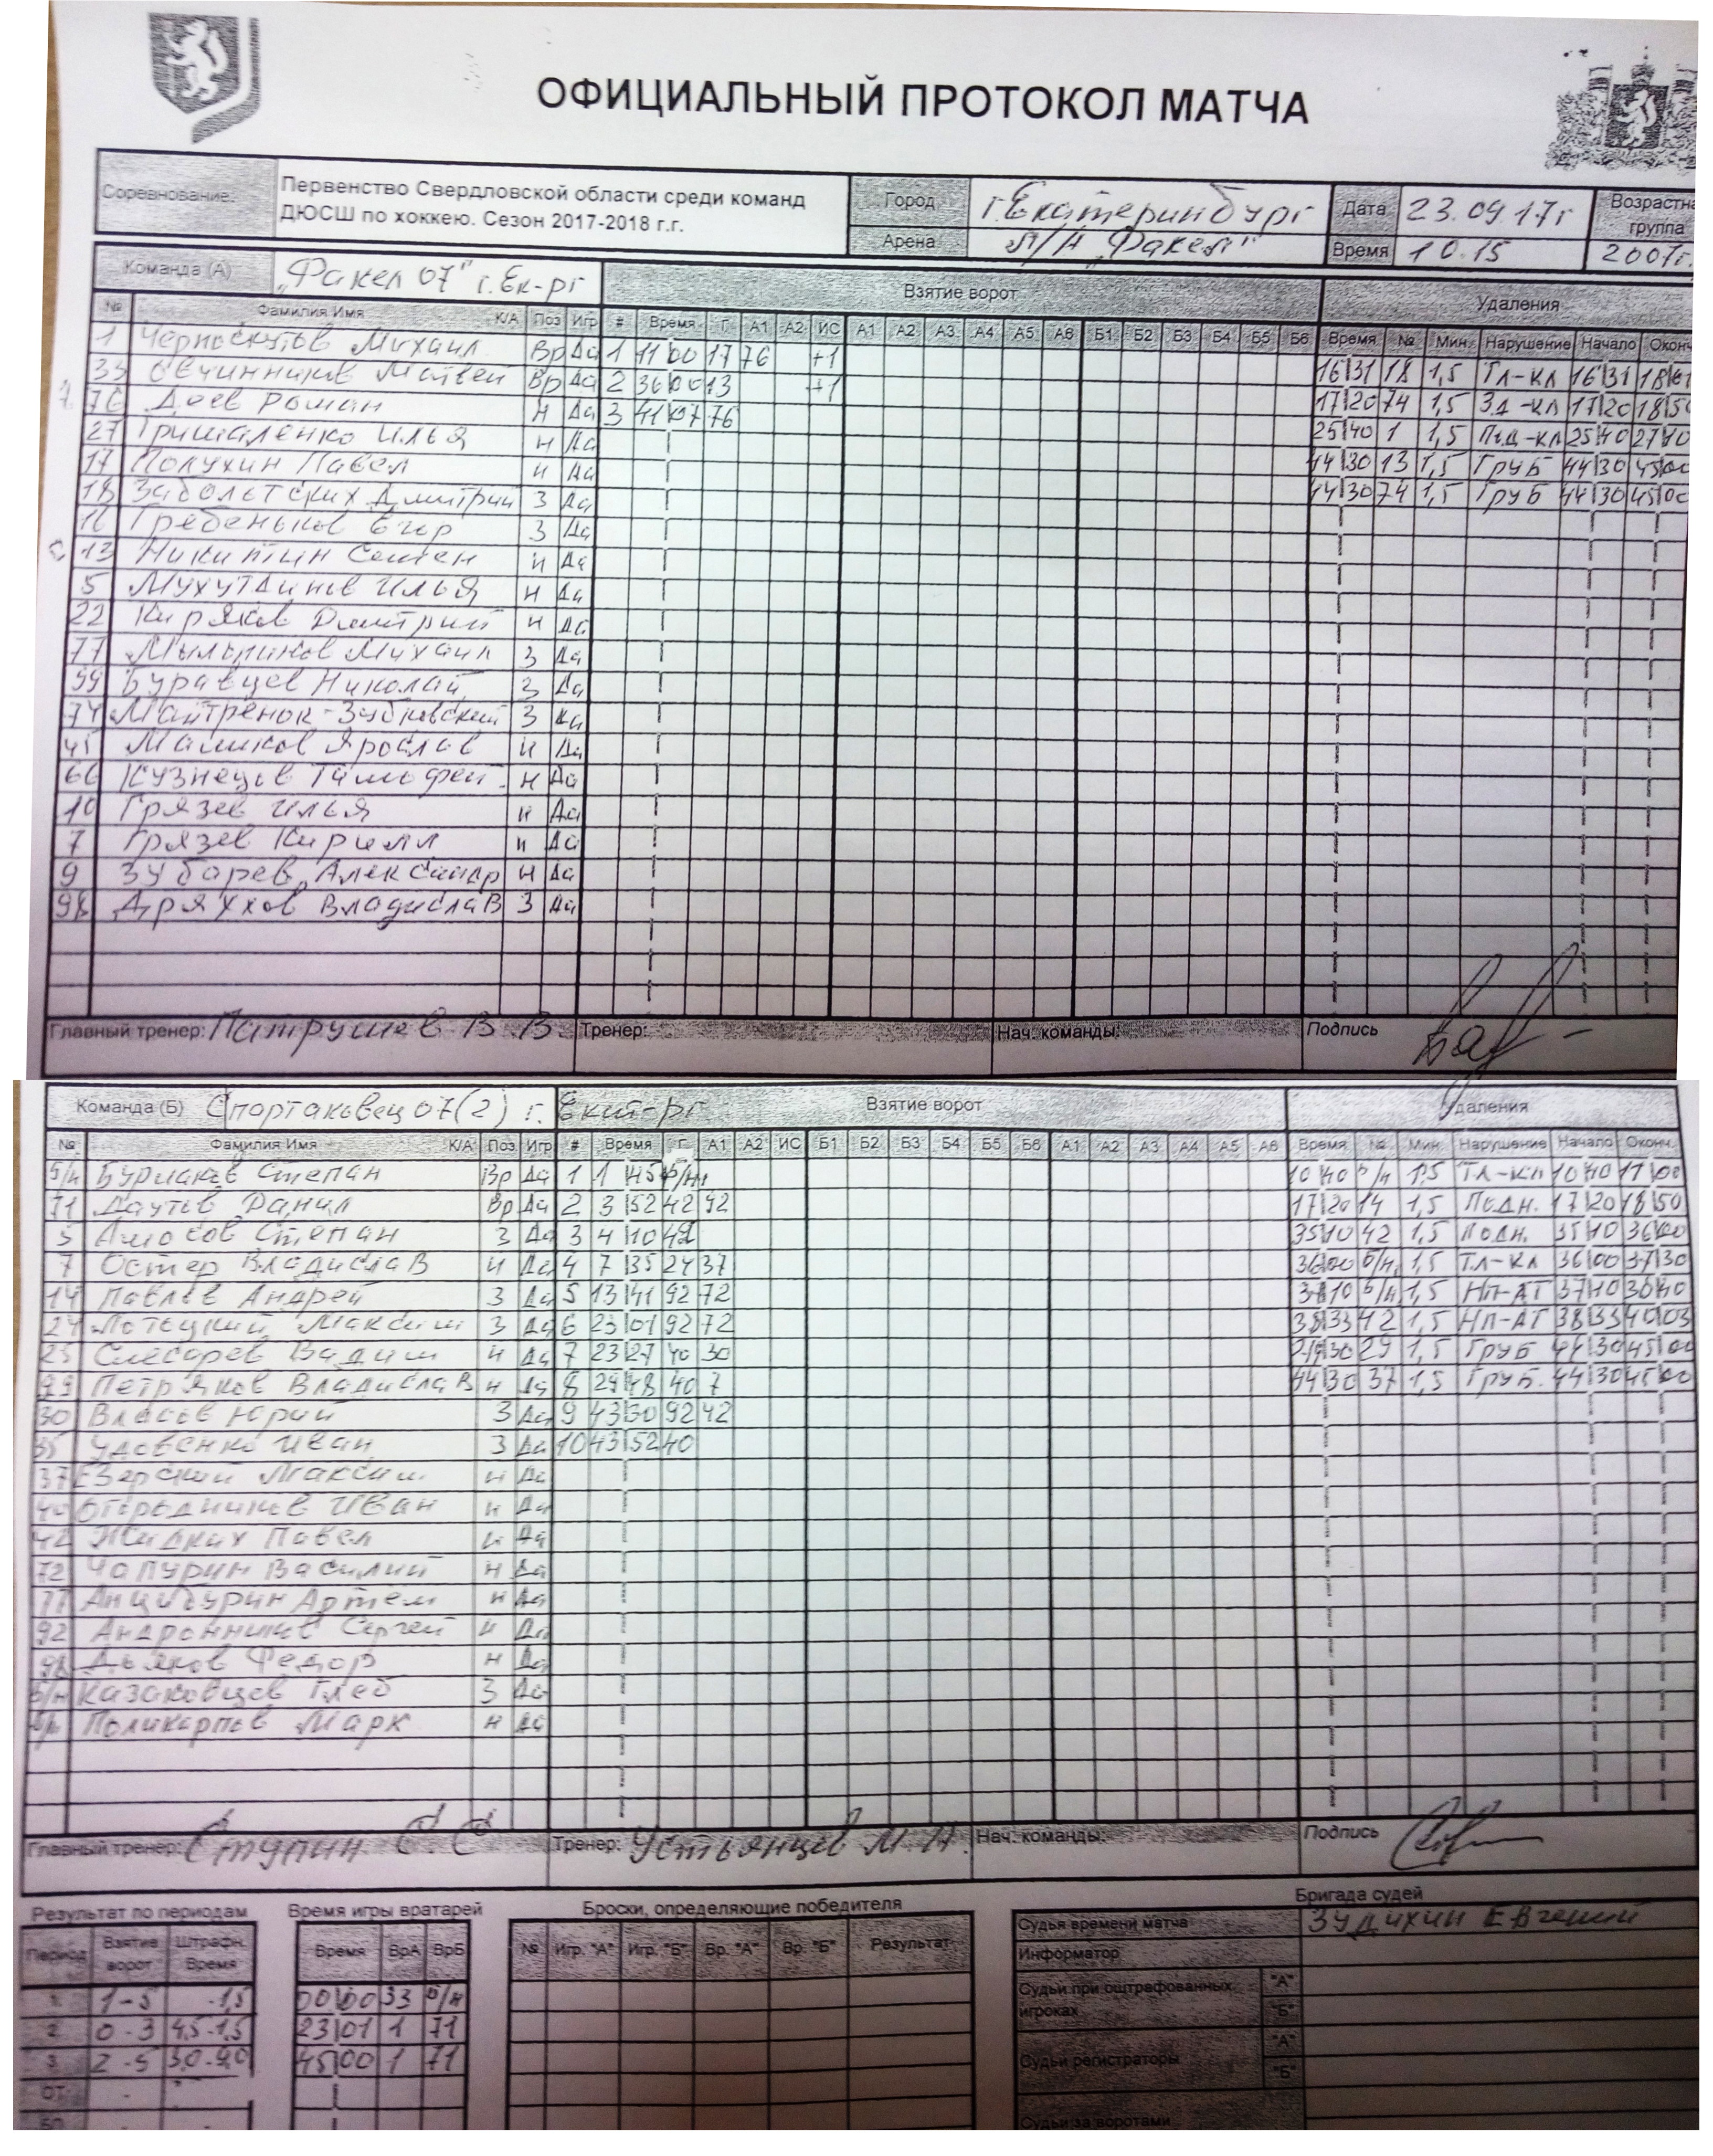 ОФИЦИАЛЬНЫЙ ПРОТОКОЛ МАТЧА
Соревнование: Первенство Свердловской области среди команд ДЮСШ по хоккею. Сезон 2017-2018 г.г. Город г.Екатеринбург Дата 23.09.17г Возрастн группа 2007г.
Арена Л/А „Факел" Время 10.15
Команда (А) „Факел 07" г.Ек-рг Взятие ворот Удаления
№ Фамилия Имя К/А Поз Игр # Время Г А1 А2 ИС А1 А2 А3 А4 А5 А6 Б1 Б2 Б3 Б4 Б5 Б6 Время № Мин. Нарушение Начало Оконч
1 Черноскутов Михаил Вр Да 1 11 00 17 76 +1 16 31 18 1,5 Тл-кл 16 31 18 01
33 Овчинников Матвей Вр Да 2 36 00 13 +1 17 20 74 1,5 Зд-кл 17 20 18 50
76 Доев Роман Н Да 3 41 07 76 25 40 1 1,5 Пд-кл 25 40 27 10
27 Гришаленко Илья Н Да 44 30 13 1,5 Груб 44 30 45 00
17 Полухин Павел Н Да 44 30 74 1,5 Груб 44 30 45 00
18 Заболотских Дмитрий З Да
Гребеньков Егор З Да
13 Никитин Семен Н Да
5 Мухутдинов Илья Н Да
22 Киряков Дмитрий Н Да
77 Мыльников Михаил З Да
99 Буравцев Николай З Да
74 Майтренок-Зубковский З Да
45 Маликов Ярослав Н Да
66 Кузнецов Тимофей Н Да
10 Грязев Илья Н Да
7 Грязев Кирилл Н Да
9 Зубарев Александр Н Да
98 Дряхлов Владислав З Да
Главный тренер: Патрушев В.В. Тренер: Нач. команды: Подпись
Команда (Б) Спортаковец 07(2) г. Екат-рг Взятие ворот Удаления
№ Фамилия Имя К/А Поз Игр # Время Г А1 А2 ИС Б1 Б2 Б3 Б4 Б5 Б6 А1 А2 А3 А4 А5 А6 Время № Мин. Нарушение Начало Оконч.
б/н Бурлаков Степан Вр Да 1 1 45 б/н 10 40 б/н 1,5 Тл-кл 10 40 11 00
71 Даутов Данил Вр Да 2 3 52 42 92 17 20 14 1,5 Подн. 17 20 18 50
5 Амосов Степан З Да 3 4 10 42 35 10 42 1,5 Подн. 35 10 36 00
7 Остер Владислав Н Да 4 7 35 24 37 36 00 б/н 1,5 Тл-кл 36 00 37 30
14 Павлов Андрей З Да 5 13 41 92 72 б/н 1,5 Нп-Ат
24 Лотоцкий Максим З Да 6 23 01 92 72 38 33 42 1,5 Нп-Ат 38 33 40 03
25 Слесарев Вадим Н Да 7 23 27 40 30 44 30 29 1,5 Груб 44 30 45 00
99 Петряков Владислав Н Да 8 29 48 40 7 44 30 37 1,5 Груб. 44 30 45 00
30 Власов Юрий З Да 9 43 30 92 42
35 Удовенко Иван З Да 10 43 52 40
37 Езерский Максим Н Да
40 Огородников Иван Н Да
42 Жидких Павел Н Да
72 Чапурин Василий Н Да
77 Анцибурин Артем Н Да
92 Андронников Сергей Н Да
98 Дьяков Федор Н Да
б/н Казаковцев Глеб З Да
б/н Поликарпов Марк Н Да
Главный тренер: Ступин С.С. Тренер: Устьянцев М.А. Нач. команды: Подпись
Результат по периодам Время игры вратарей Броски, определяющие победителя Бригада судей
Период Взятие ворот Штрафн. Время Время ВрА ВрБ № Игр. "А" Игр. "Б" Вр. "А" Вр. "Б" Результат Судья времени матча Зудихин Евгений
Информатор
1 1-5 -1,5 00 00 33 б/н Судьи при оштрафованных игроках "А" "Б"
2 0-3 4,5-1,5 23 01 1 71
3 2-5 3,0-9,0 45 00 1 71 Судьи регистраторы "А" "Б"
ОТ
БП Судьи за воротами